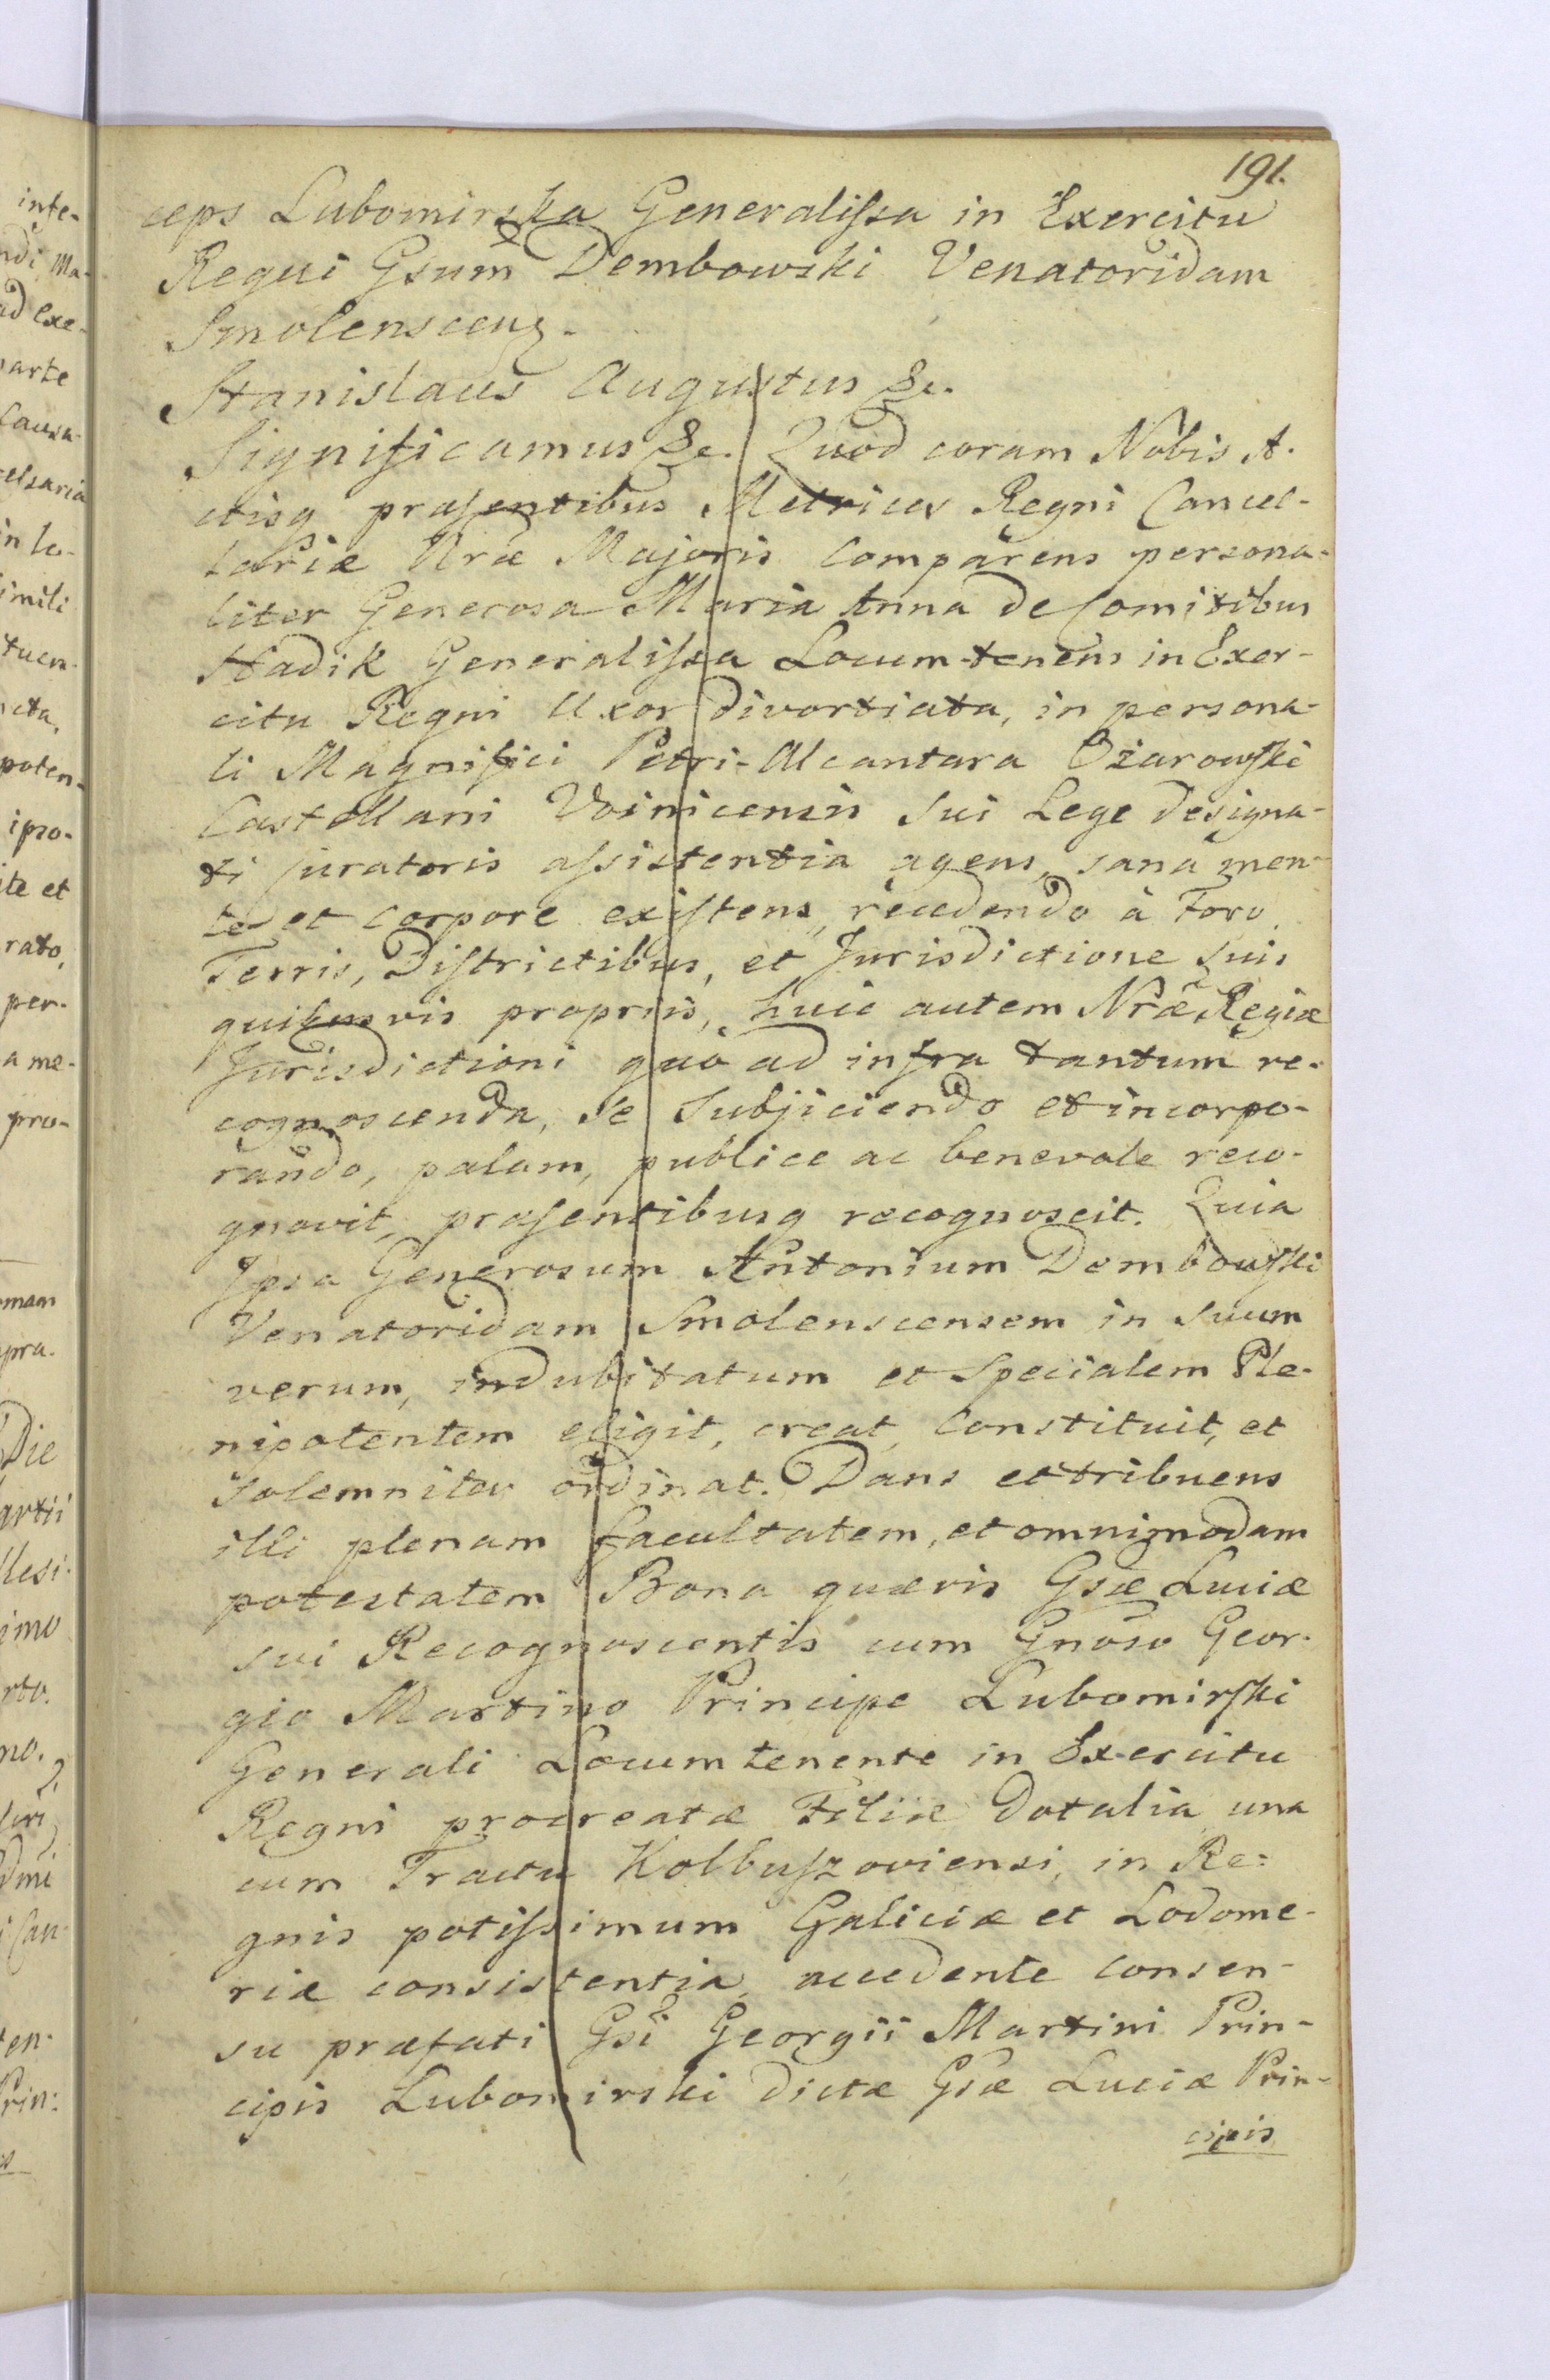 191.
ceps Lubomirska Generalissa in Exercitu
Regni Gsum Dembowski Venatoridam
Smolenscens.
Stanislaus Augustus &c.
Significamus &c. Quod coram Nobis A-
ctisq presentibus Metrices Regni Cancel-
lariæ Nræ Majoris comparens persona-
liter Generosa Maria Anna de Comitibus
Hadik Generalissa Locum-tenens in Exer-
citu Regni Uxor divortiata, in persona-
li Magnifici Petri-Alcantara Ożarowski
Castellani Voinicensis sui Lege designa-
ti curatoris assistentia agens, sana men-
te et corpore existens, recedendo à Foro
Terris, Districtibus, et Jurisdictione suis
quibusvis propriis, huic autem Nræ Regiæ
Jurisdictioni quò ad infra tantum re-
cognoscenda, se subjiciendo et incorpo-
rando, palam, publice ac benevole reco-
gnovit, præsentibusq recognoscit. Quia
Ipsa Generosum Antonium Dembowski
Venatoridam Smolenscensem in suum
verum, indubitatum et specialem Ple-
nipotentem eligit, creat, constituit, et
solemniter ordinat. Dans et tribuens
illi plenam facultatem, et omnimodam
potestatem Bona quævis Gsæ Luciæ
sui Recognoscentis cum Gnoso Geor-
gio Martino Principe Lubomirski
Generali Locumtenente in Exercitu
Regni procreatæ Filiæ dotalia una
cum Tractu Kolbuszoviensi, in Re-
gnis potissimum Galiciæ et Lodome-
riæ consistentia, accedente consen-
su præfati Gsi Georgii Martini Prin-
cipis Lubomirski dictæ Gsæ Luciæ Prin-
cipis
inte-
ndi Ma-
ad exe-
parte
Causa
in lo-
simili
poten-
ipso-
ite et
rato,
per-
a me-
pro-
omam
Die
artii